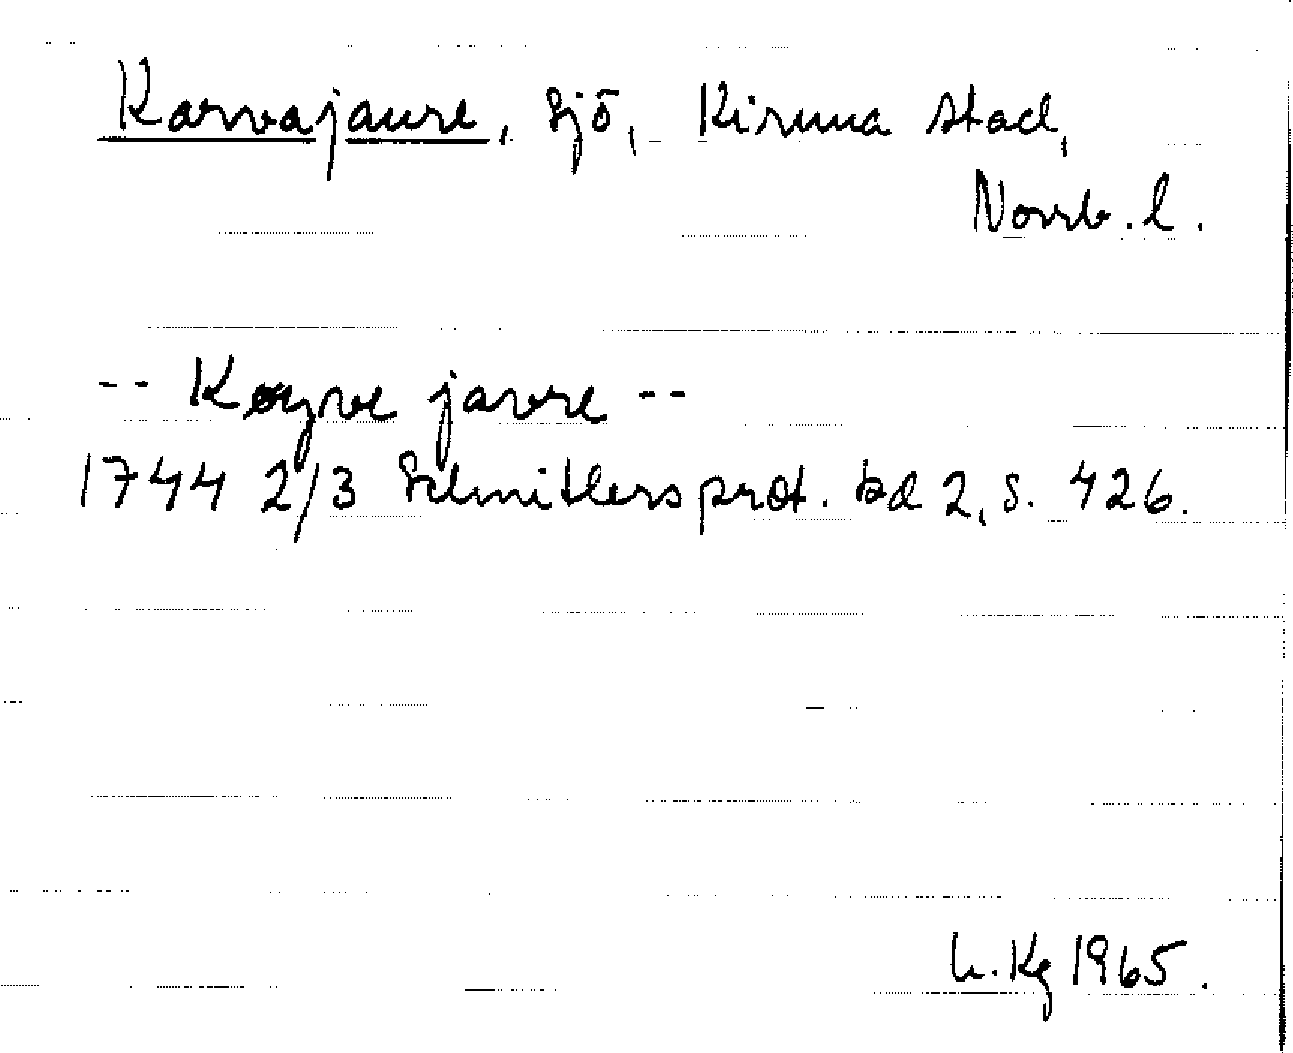 Karvajaure, sjö, Kiruna stad,
Norrb. l.
-- Køyve javre --
1744 2/3 Schnitlers prot. bd 2, s. 426.
L. Kg 1965.